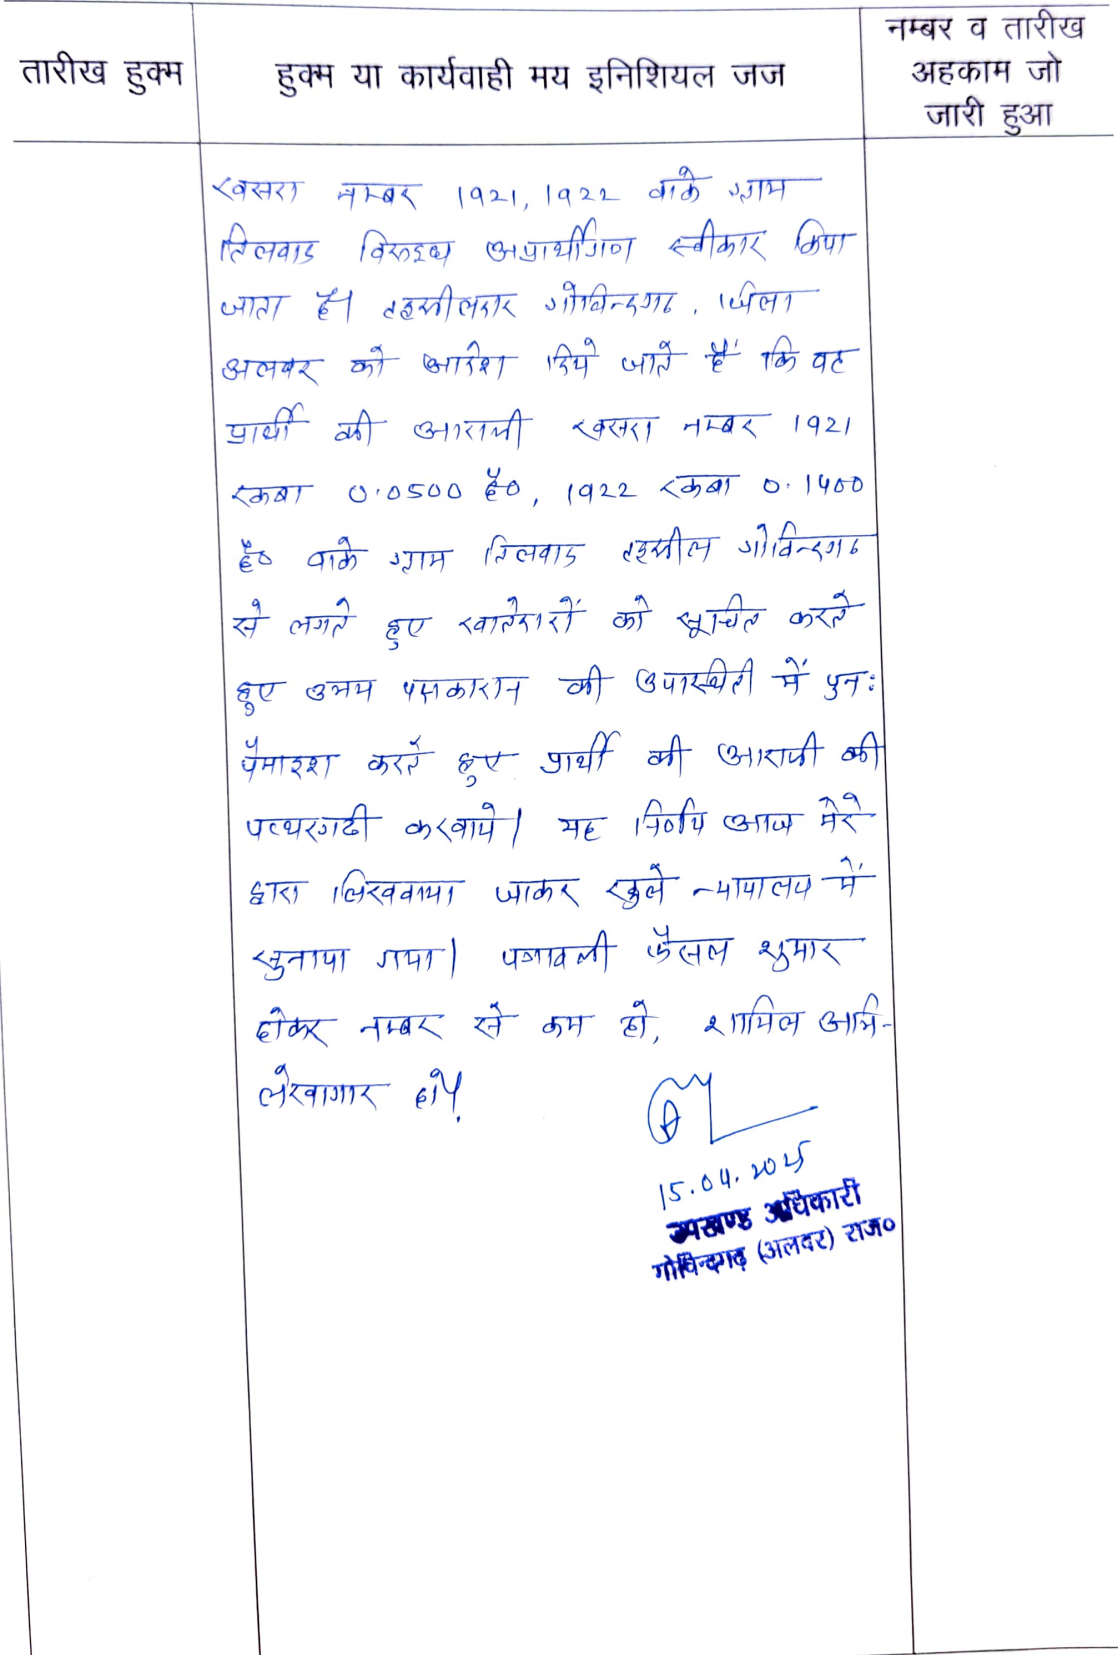 तारीख हुक्म
हुक्म या कार्यवाही मय इनिशियल जज
नम्बर व तारीख
अहकाम जो
जारी हुआ
खसरा नम्बर 1921, 1922 वाके ग्राम
तिलवाड विरूद्ध अप्रार्थीगण स्वीकार किया
जाता है। तहसीलदार गोविन्दगढ, जिला
अलवर को आदेश दिये जाते हैं कि वह
प्रार्थी की आराजी खसरा नम्बर 1921
रकबा 0.0500 है०, 1922 रकबा 0.1400
है० वाके ग्राम तिलवाड तहसील गोविन्दगढ
से लगते हुए खातेदारों को सूचित करते
हुए उभय पक्षकारान की उपस्थिती में पुनः
पैमाइश करते हुए प्रार्थी की आराजी की
पत्थरगढी करवाये। यह निर्णय आज मेरे
द्वारा लिखवाया जाकर खुले न्यायालय में
सुनाया गया। पत्रावली फैसल शुमार
होकर नम्बर से कम हो, शामिल अभि-
लेखागार हो।
15.04.2025
उपखण्ड अधिकारी
गोविन्दगढ़ (अलवर) राज०